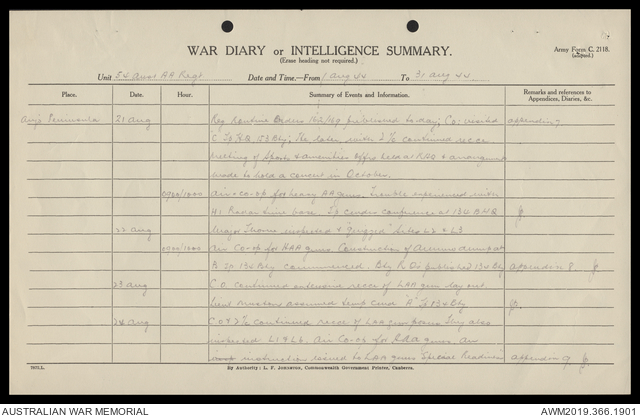 WAR DIARY or INTELLIGENCE SUMMARY.
(Erase heading not required.)
Army Form C. 2118.
(adapted.)
Unit 54 Aust AA Regt Date and Time.—From 1 Aug 44 To 31 Aug 44
Place. Date. Hour. Summary of Events and Information. Remarks and references to Appendices, Diaries, &c.
Peninsula 21 Aug Reg Routine Orders published today; C.O. visited appendix 7
C Tp H.Q, 153 Bty; The later, with 2 i/c continued recce
meeting of Sports & amenities offrs held at RHQ &
made to hold a concert in October.
0900/1000 Air co-op for heavy AA guns. Trouble experienced with
A1 Radar time base. Tp comdrs conference at 134 BHQ
22 Aug Major Thomas inspected & "pegged" sites L2 & L3
0900/1000 Air Co-op for HAA guns. Construction of
B Tp 134 Bty commenced. Bty published 134 Bty appendix 8.
23 Aug C.O. continued extensive recce of LAA gun lay out.
Lieut assumed temp cmd "A" Tp 134 Bty
24 Aug CO & 2 i/c continued recce of LAA gun posns They also
inspected L1 & L6. Air Co-op for HAA guns. An
instruction issued to LAA guns Special Readiness appendix 9.
7970.L.
By Authority: L. F. JOHNSTON, Commonwealth Government Printer, Canberra.
AUSTRALIAN WAR MEMORIAL
AWM2019.366.1901